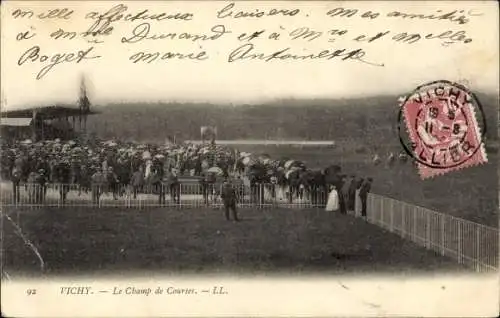 Mille affectueux baisers. mes amitiés
à Mme Durand et à Mrs et melles
Boget Marie Antoinette
VICHY
11
ALLIER
92 VICHY. — Le Champ de Courses. — LL.